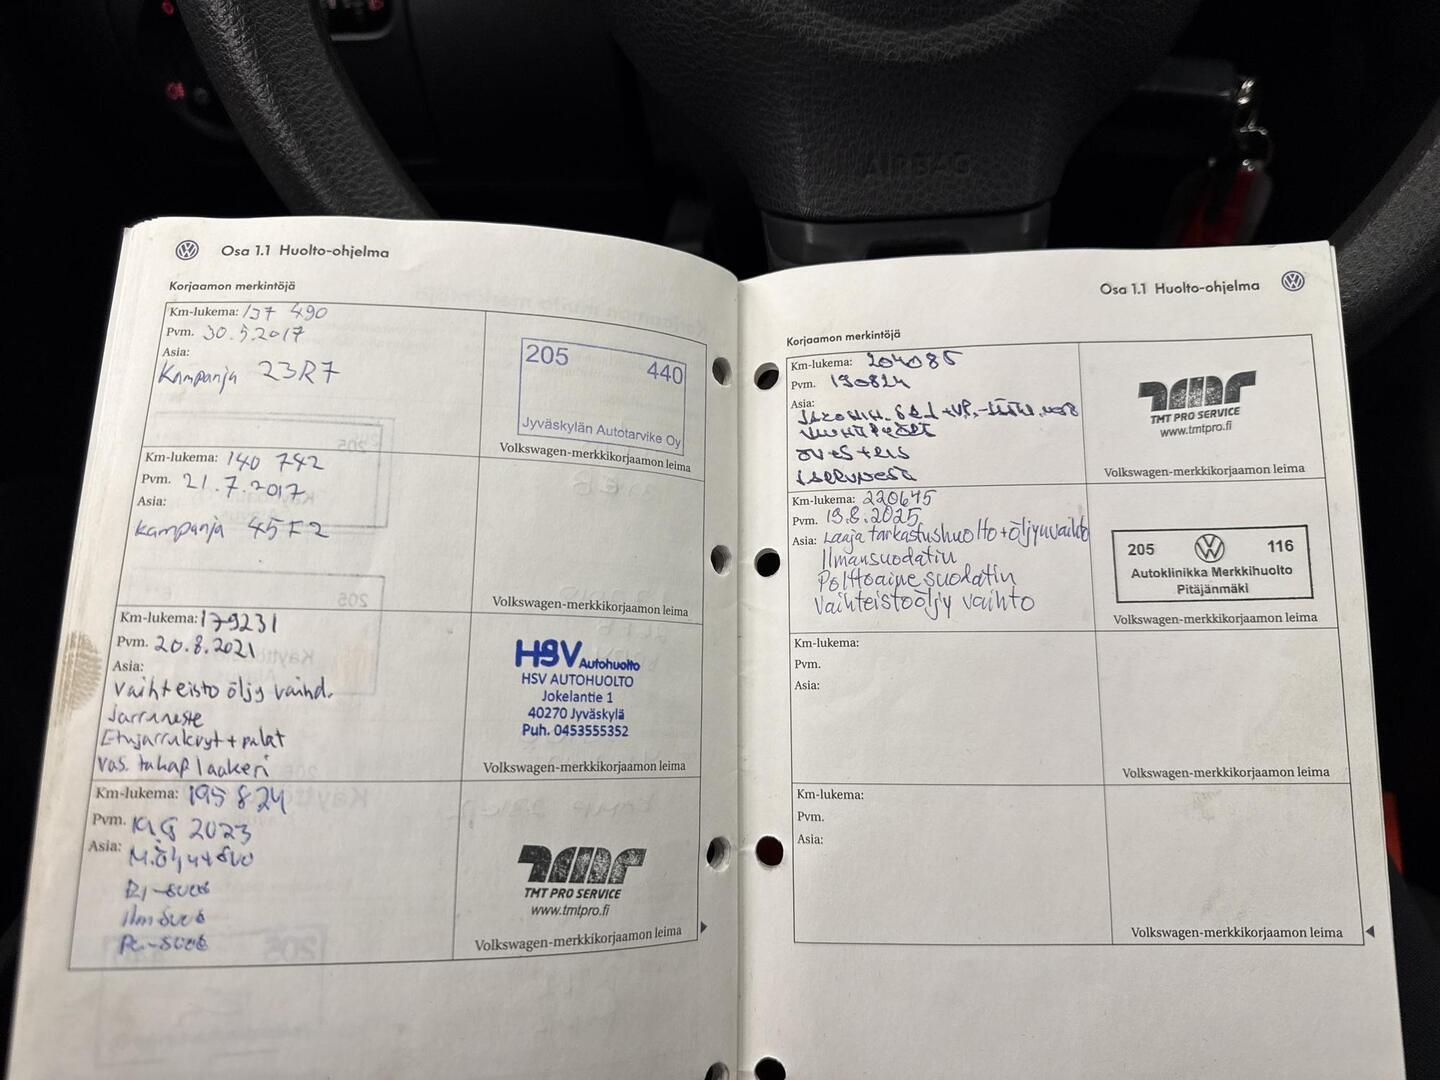 AIRBAG
Osa 1.1 Huolto-ohjelma
Korjaamon merkintöjä
Km-lukema: 137 490
Pvm. 30.5.2017
Asia:
Kampanja 23R7
205
440
Jyväskylän Autotarvike Oy
Volkswagen-merkkikorjaamon leima
Km-lukema: 140 742
Pvm. 21.7.2017
Asia:
Kampanja 45F2
Volkswagen-merkkikorjaamon leima
Km-lukema: 179231
Pvm. 20.8.2021
Asia:
Vaihteisto öljy vaihd.
Jarruneste
Etujarrulevyt + palat
Vas. takap laakeri
HSV Autohuolto
HSV AUTOHUOLTO
Jokelantie 1
40270 Jyväskylä
Puh. 0453555352
Volkswagen-merkkikorjaamon leima
Km-lukema: 195 824
Pvm. 2023
Asia: M.Öljy+suo
Ri-suod
Ilmsuod
Pa-suod
TMT PRO SERVICE
www.tmtpro.fi
Volkswagen-merkkikorjaamon leima
Osa 1.1 Huolto-ohjelma
Korjaamon merkintöjä
Km-lukema: 204085
Pvm. 190824
Asia:
TMT PRO SERVICE
www.tmtpro.fi
Volkswagen-merkkikorjaamon leima
Km-lukema: 220645
Pvm. 19.8.2025
Asia: Laaja tarkastushuolto+öljynvaihto
Ilmansuodatin
Polttoaine suodatin
Vaihteistoöljy vaihto
205
116
Autoklinikka Merkkihuolto
Pitäjänmäki
Volkswagen-merkkikorjaamon leima
Km-lukema:
Pvm.
Asia:
Volkswagen-merkkikorjaamon leima
Km-lukema:
Pvm.
Asia:
Volkswagen-merkkikorjaamon leima